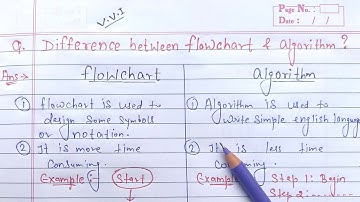 V.V.I
Page No.:
Date: / /
Q. Difference between flowchart & Algorithm?
Ans→
flowchart
Algorithm
① flowchart is used to
design some symbols
or notation.
② It is more time
consuming.
Example:-
Start
① Algorithm is used to
write simple english language
② It is less time
consuming.
Example:
Step 1: Begin
Step 2: